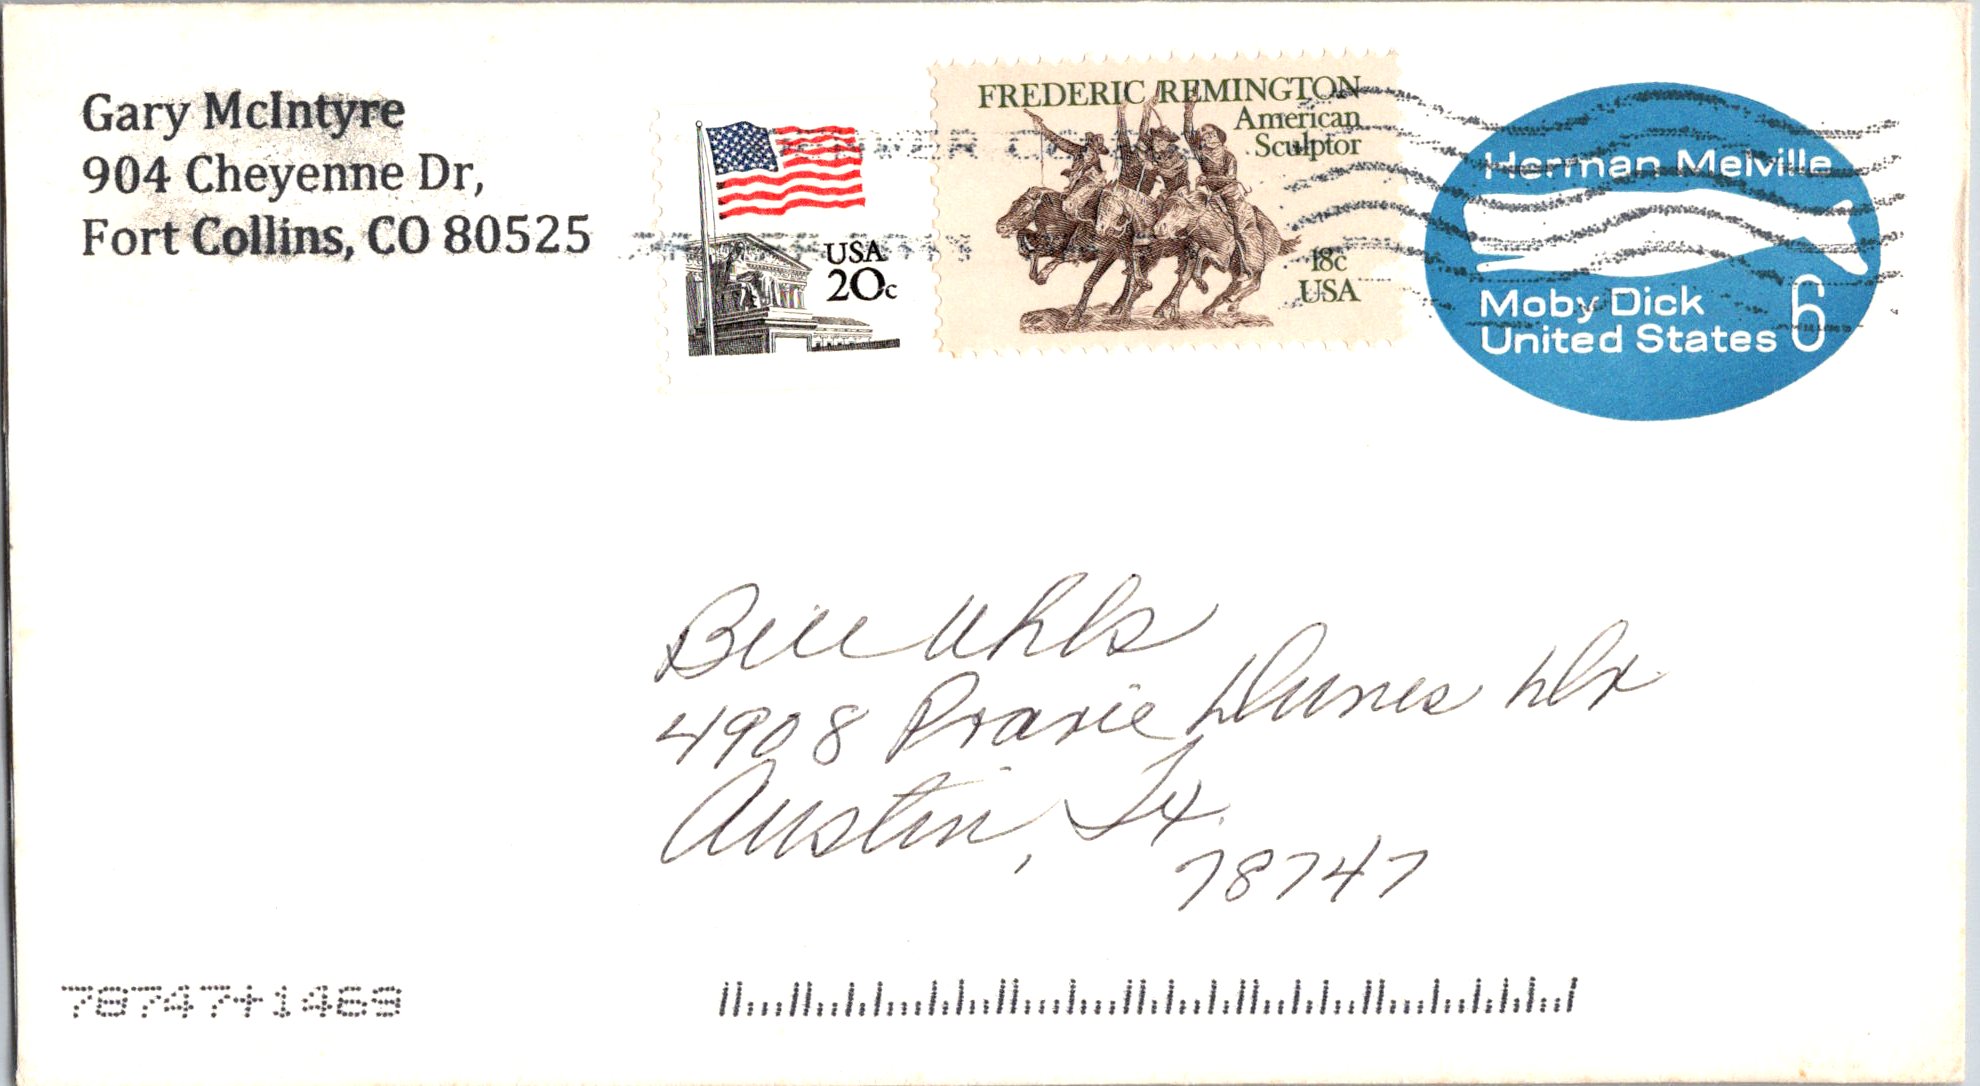 Gary McIntyre
904 Cheyenne Dr,
Fort Collins, CO 80525
USA
20c
FREDERIC REMINGTON
American
Sculptor
18c
USA
Herman Melville
Moby Dick
United States 6
Bill Uhls
4908 Prarie Dunes Dr
Austin, Tx.
78747
78747+1469